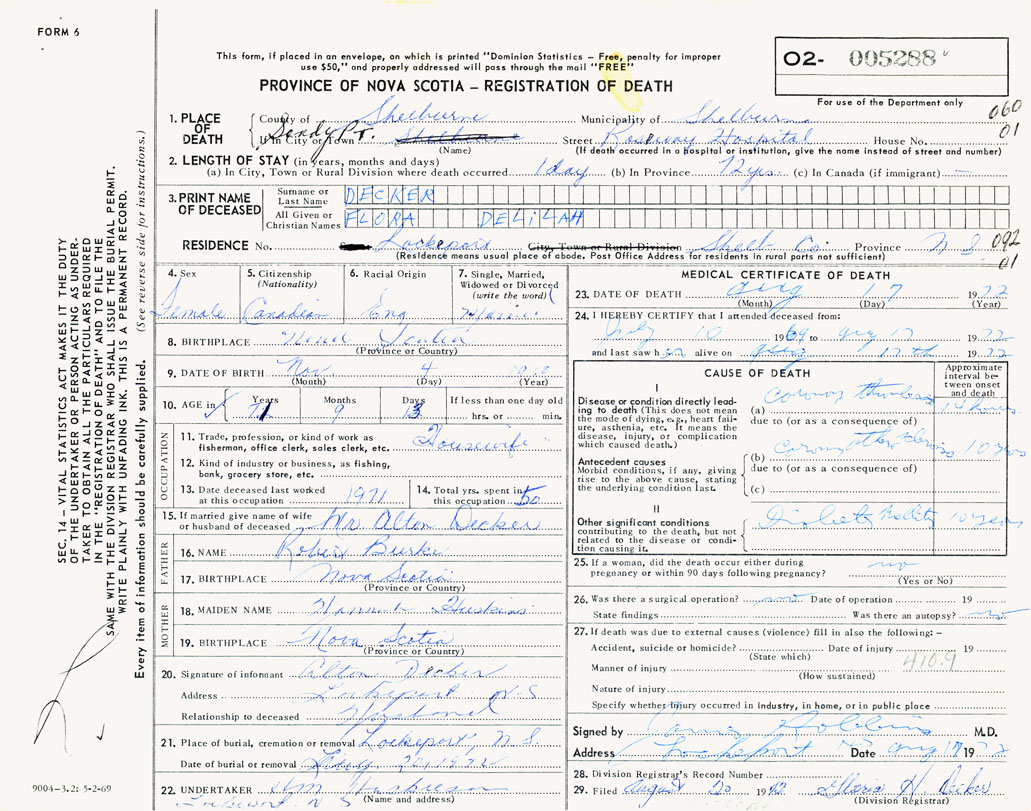 FORM 6
This form, if placed in an envelope, on which is printed "Dominion Statistics – Free, penalty for improper
use $50," and properly addressed will pass through the mail "FREE"
O2- 005288
PROVINCE OF NOVA SCOTIA – REGISTRATION OF DEATH
For use of the Department only
060
01
1. PLACE OF DEATH
County of Shelburne Municipality of Shelburne
If in City or Town Sandy Pt. Street Roseway Hospital House No.
(Name) (If death occurred in a hospital or institution, give the name instead of street and number)
2. LENGTH OF STAY (in years, months and days)
(a) In City, Town or Rural Division where death occurred 1 day (b) In Province 72 yrs. (c) In Canada (if immigrant) —
3. PRINT NAME OF DECEASED
Surname or Last Name DECKER
All Given or Christian Names FLORA DELILAH
RESIDENCE No. Lockeport City, Town or Rural Division Shelb Co. Province N S
092
01
(Residence means usual place of abode. Post Office Address for residents in rural parts not sufficient)
4. Sex Female
5. Citizenship (Nationality) Canadian
6. Racial Origin Eng
7. Single, Married, Widowed or Divorced (write the word)
8. BIRTHPLACE Nova Scotia
(Province or Country)
9. DATE OF BIRTH Nov 4
(Month) (Day) (Year)
10. AGE in Years 71 Months 9 Days 13 If less than one day old
hrs. or min.
OCCUPATION
11. Trade, profession, or kind of work as fisherman, office clerk, sales clerk, etc. Housewife
12. Kind of industry or business, as fishing, bank, grocery store, etc.
13. Date deceased last worked at this occupation 1971
14. Total yrs. spent in this occupation 50
15. If married give name of wife or husband of deceased Mr Alton Decker
FATHER
16. NAME Robert Burke
17. BIRTHPLACE Nova Scotia
(Province or Country)
MOTHER
18. MAIDEN NAME Hannah Huskins
19. BIRTHPLACE Nova Scotia
(Province or Country)
20. Signature of informant Alton Decker
Address Lockeport N-S
Relationship to deceased Husband
21. Place of burial, cremation or removal Lockeport, N S.
Date of burial or removal 1972
22. UNDERTAKER
(Name and address)
Lockeport N S
MEDICAL CERTIFICATE OF DEATH
23. DATE OF DEATH Aug 17 1972
(Month) (Day) (Year)
24. I HEREBY CERTIFY that I attended deceased from:
July 10 1969 to Aug 17 1972
and last saw her alive on Aug 17th 1972
CAUSE OF DEATH
Approximate interval between onset and death
I
Disease or condition directly leading to death (This does not mean the mode of dying, e.g., heart failure, asthenia, etc. It means the disease, injury, or complication which caused death.)
(a) Coronary thrombosis 14 hours
due to (or as a consequence of)
Antecedent causes
Morbid conditions, if any, giving rise to the above cause, stating the underlying condition last.
(b) Coronary 10 years
due to (or as a consequence of)
(c)
II
Other significant conditions contributing to the death, but not related to the disease or condition causing it.
Diabetes Mellitus 10 years
25. If a woman, did the death occur either during pregnancy or within 90 days following pregnancy? no
(Yes or No)
26. Was there a surgical operation? no Date of operation 19
State findings Was there an autopsy? no
27. If death was due to external causes (violence) fill in also the following: –
Accident, suicide or homicide? Date of injury 19
(State which) 410.9
Manner of injury
(How sustained)
Nature of injury
Specify whether injury occurred in industry, in home, or in public place
Signed by M.D.
Address Lockeport NS Date Aug 17 1972
28. Division Registrar's Record Number
29. Filed August 20 1972 H. Decker
(Division Registrar)
SEC. 14 – VITAL STATISTICS ACT MAKES IT THE DUTY
OF THE UNDERTAKER OR PERSON ACTING AS UNDER-
TAKER TO OBTAIN ALL THE PARTICULARS REQUIRED
IN THE "REGISTRATION OF DEATH" AND TO FILE THE
SAME WITH THE DIVISION REGISTRAR WHO SHALL ISSUE THE BURIAL PERMIT.
WRITE PLAINLY WITH UNFADING INK. THIS IS A PERMANENT RECORD.
Every item of information should be carefully supplied. (See reverse side for instructions.)
9004-3.2: 5-2-69